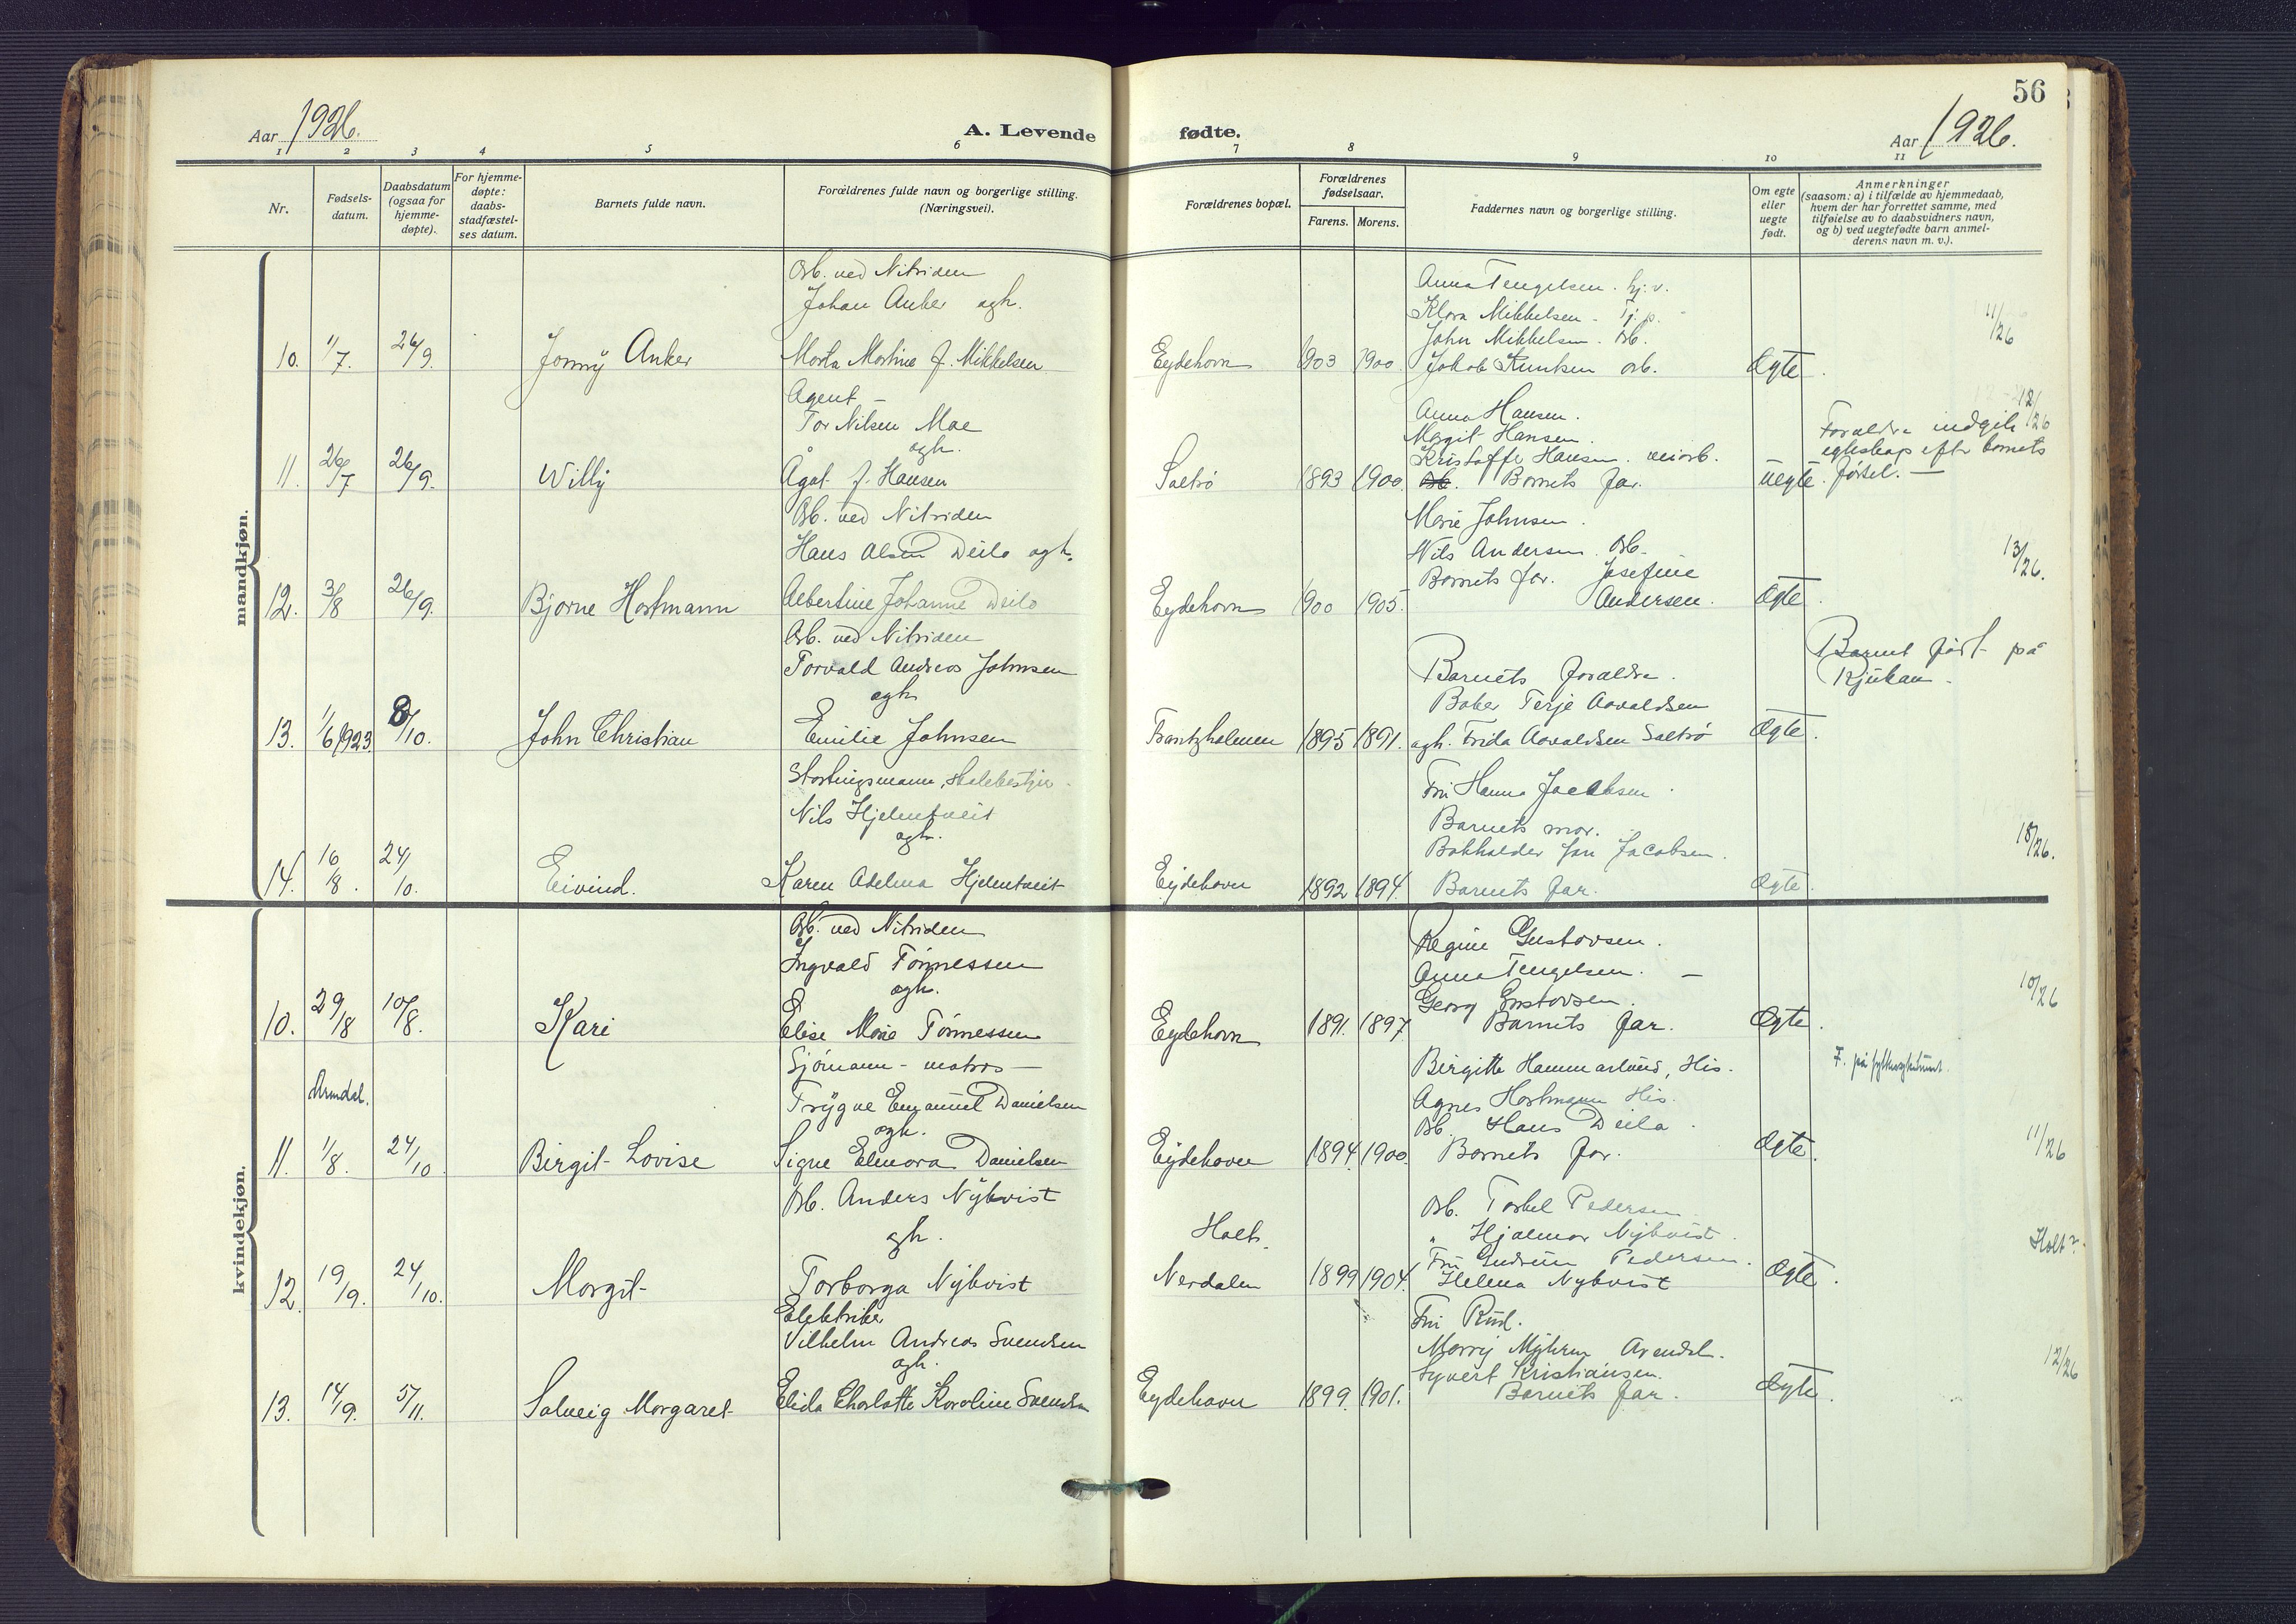 56
Aar 1926.
A. Levende fødte.
Aar 1926.
1 2 3 4 5 6 7 8 9 10 11
Nr.
Fødsels-
datum.
Daabsdatum
(ogsaa for
hjemme-
døpte).
For hjemme-
døpte:
daabs-
stadfæstel-
ses datum.
Barnets fulde navn.
Forældrenes fulde navn og borgerlige stilling.
(Næringsvei).
Forældrenes bopæl.
Forældrenes
fødselsaar.
Farens. Morens.
Faddernes navn og borgerlige stilling.
Om egte
eller
uegte
født.
Anmerkninger
(saasom: a) i tilfælde av hjemmedaab,
hvem der har forrettet samme, med
tilføielse av to daabsvidners navn,
og b) ved uegtefødte barn anmel-
derens navn m. v.).
mandkjøn.
10. 1/7. 26/9. Jonny Anker
Arb. ved Nitriden
Johan Anker ogh.
Marta Martine f. Mikkelsen
Eydehavn 1903 1900
Anna Tengelsen. hj.v.
Klara Mikkelsen - Tj.p.
John Mikkelsen. Arb.
Jakob Knutsen arb.
Ægte.
11/26
11. 26/7 26/9. Willy
Agent -
Tor Nilsen Moe
ogh.
Ågot f. Hansen
Saltrø 1893 1900.
Anna Hansen.
Margit Hansen.
Kristoffe Hansen. veiarb.
Arb. Barnets far.
uegte.
Forældre indgik
egteskap eftr barnets
førsel. -
12/26
12. 3/8 26/9. Bjarne Hartmann
Arb. ved Nitriden
Hans Alsen Deila ogh.
Albertine Johanne Deila
Eydehavn 1900 1905.
Marie Johnsen.
Nils Andersen. Arb.
Barnets far. Josefine
Andersen.
Ægte.
13/26.
13. 1/6 1923 8/10. John Christian
Arb. ved Nitriden
Torvald Andreas Johnsen
ogh
Emilie Johnsen
Frantzholmen 1895 1891.
Barnets forældre.
Baker Terje Aavaldsen
ogh. Frida Aavaldsen Saltrø
Ægte.
Barnet født på
Rjukan.
14. 16/8. 24/10. Eivind.
Stortingsmann,
Nils Hjelmtveit
ogh.
Karen Adelina Hjelmtveit
Eydehavn 1892 1894.
Fru Hanna Jacobsen.
Barnets mor.
Bokholder Jan Jacobsen.
Barnets far.
Ægte.
18/26.
kvindekjøn.
10. 29/8 10/8. Kari
Arb. ved Nitriden
Ingvald Tønnessen
ogh.
Elise Marie Tønnessen
Eydehavn 1891. 1897
Regine Gustavsen.
Anna Tengelsen. -
Georg Gustavsen.
Barnets far.
Ægte.
10/26
Arendal.
11. 1/8. 24/10 Birgit Lovise
Sjømann - matros -
Trygve Emanuel Danielsen
ogh.
Signe Elenora Danielsen
Eydehavn 1894. 1900.
Birgitte Hammarlund, His.
Agnes Hartmann His.
Arb. Hans Deila.
Barnets far.
Ægte.
F. på
11/26
12. 19/9. 24/10. Margit
Arb. Anders Nykvist
ogh.
Torborga Nykvist
Holt.
Nerdalen 1899 1904.
Arb. Torkel Pedersen
" Hjalmar Nykvist.
Fru Gudrun Pedersen.
Helena Nykvist
Ægte.
Holt?
13. 14/9. 5/11. Solveig Margaret
Elektriker
Vilhelm Andreas Svendsen
ogh.
Elida Charlotte Karoline Svendsen
Eydehavn 1899. 1901.
Fru Rud.
Marry Myhren Arendal.
Syvert Kristiansen.
Barnets far.
Ægte.
12/26